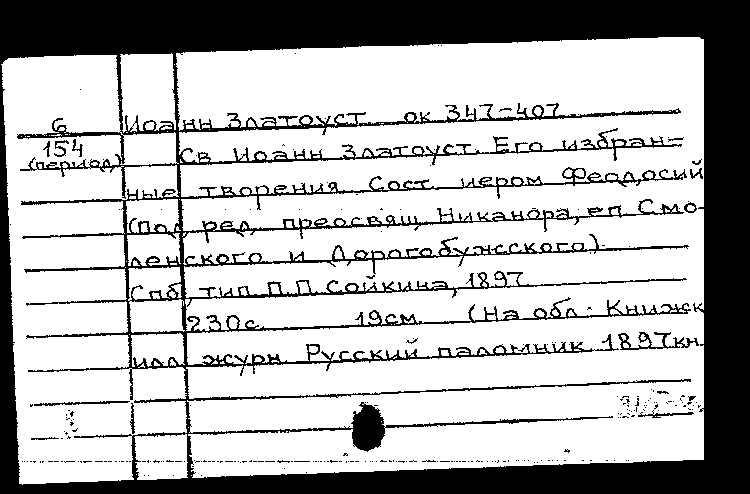 6 Иоанн Златоуст ок 347-407
154 (период)
Св Иоанн Златоуст. Его избран=
ные творения Сост. иером Феодосий
(под ред. преосвящ Никанора, еп Смо-
ленского и Дорогобужсского)
Спб, тип П.П. Сойкина, 1897
230с. 19см. (На обл: Книжк
илл журн Русский паломник 1897кн.